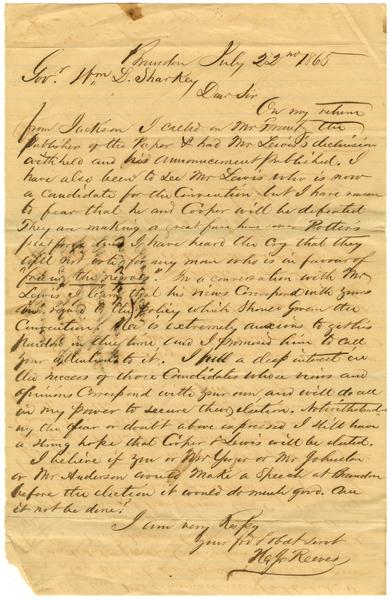 Brandon July 22nd 1865
Gov.r Wm D. Sharkey
Dear Sir
On my return
from Jackson I called on Mr the
Publisher of the Paper & had Mr Lewis's declension
withheld and his Announcement Published. I
have also been to see Mr Lewis who is now
a Candidate for the Convention but I have reason
to fear that he and Cooper will be defeated
They are making a great fuss here over Potter's
platform and I have heard the Cry that they
will not vote for any man who is in favour of
"freeing the negroes" In a conversation with Mr
Lewis I learn that his views Correspond with yours
in regard to the Policy which should Govern the
Convention. He is extremely anxious to get his
Pardon in due time and I promised him to call
your attention to it. I feel a deep interest in
the success of those Candidates whose views and
opinions Correspond with your own and will do all
in my power to secure their election. Notwithstand-
ing the fear or doubt above expressed I still have
a strong hope that Cooper & Lewis will be elected.
I believe if you or Mr Yerger or Mr Johnston
or Mr Anderson would make a speech at Brandon
before the election it would do much good. Can
it not be done?
I am very Resply
Your frd & obdt servt
Reeves